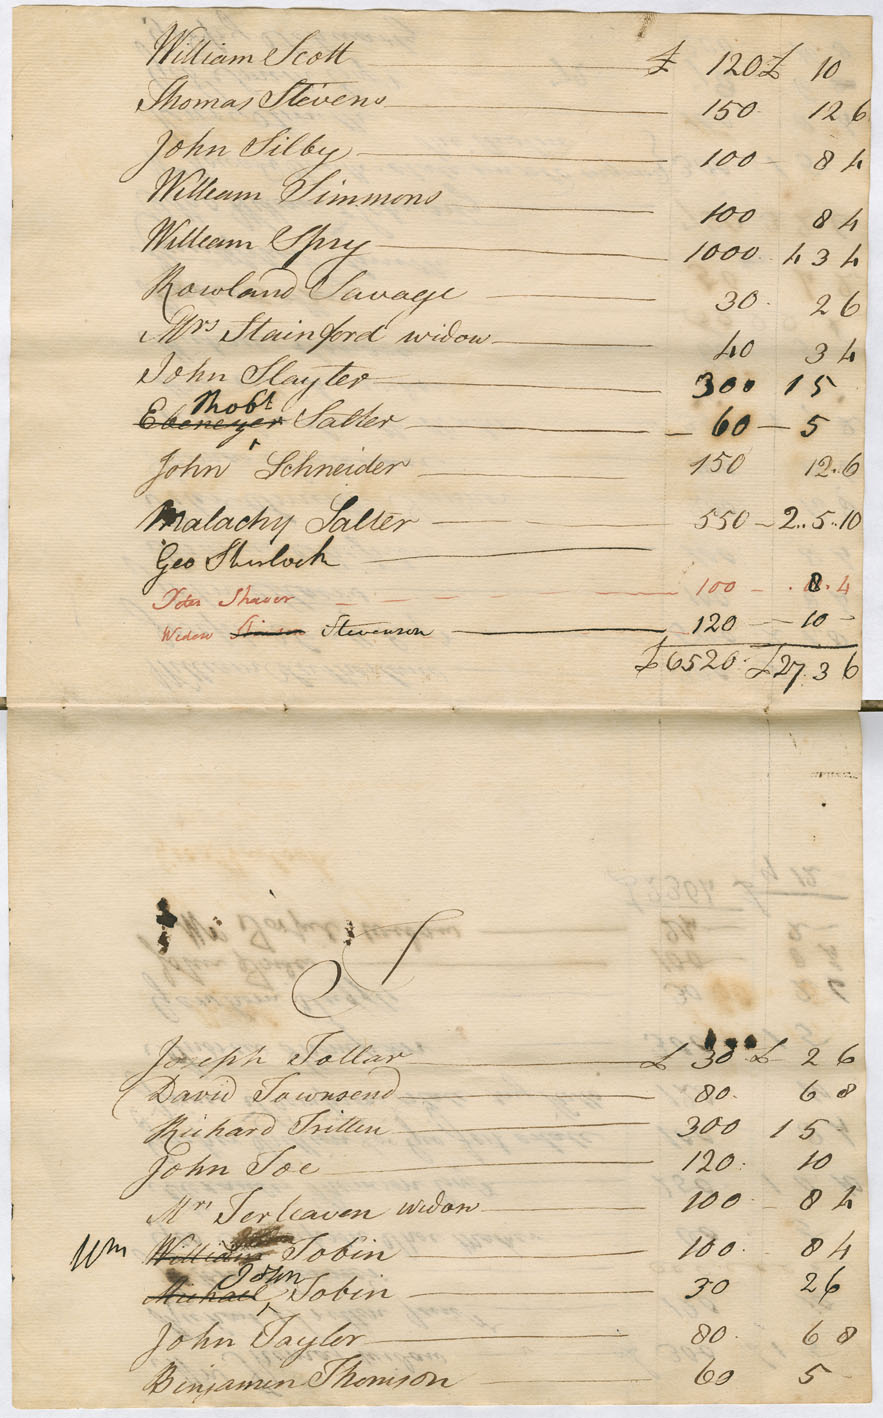 William Scott £ 120 £ 10
Thomas Stevens 150 12 6
John Silby 100 - 8 4
William Simmons 100 8 4
William Spry 1000 4 3 4
Rowland Savage 30 2 6
Mrs Stainford widow 40 3 4
John Slayter 300 1 5
Thobt
Ebenezer Salter 60 - 5
John Schneider 150 12.6
Malachy Salter 550 - 2..5..10
Geo Sherlock
Peter Shaver 100 - 8.4
Widow Stevenson 120 - 10 -
£6520. £27.3 6
T
Joseph Tollar £ 30 £ 2 6
David Townsend 80. 6 8
Richard Tritten 300 1 5
John Toe 120. 10
Mrs Terleaven widow 100 - 8 4
Wm William Tobin 100. 8 4
John
Michael Tobin 30 2 6
John Tayler 80. 6 8
Benjamin Thomson 60 5